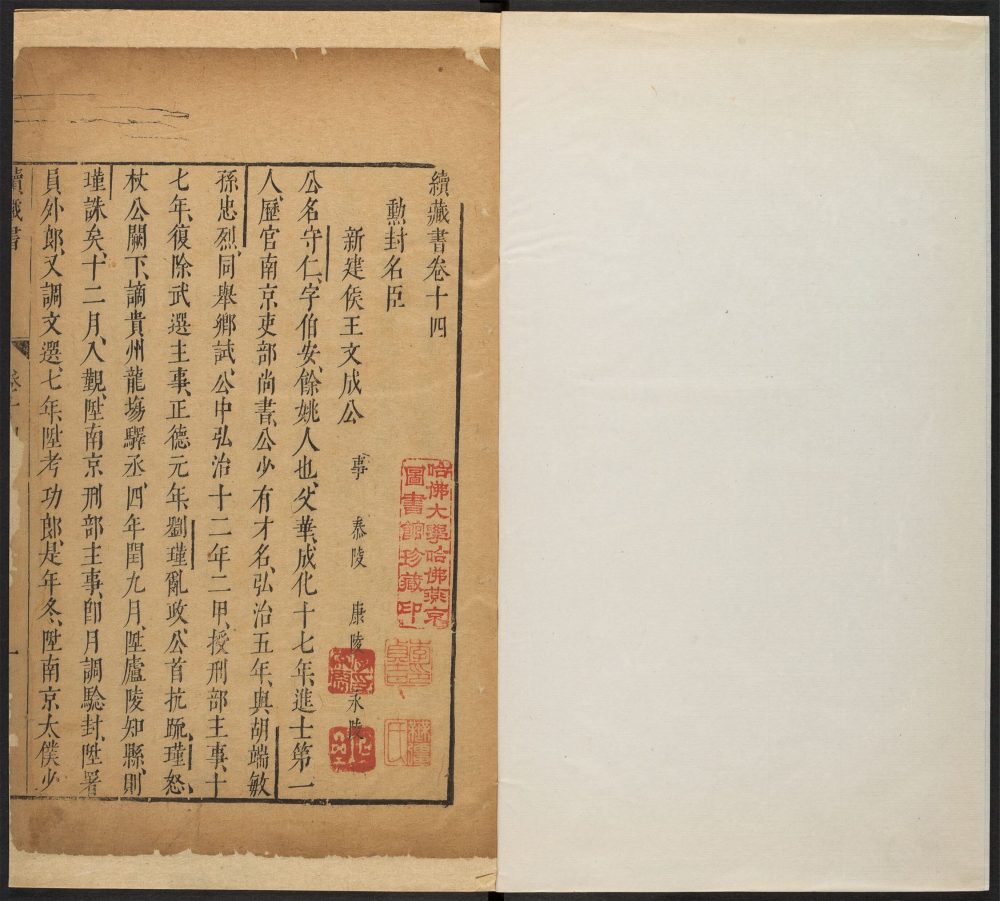 續藏書卷十四
勳封名臣
新建侯王文成公 事 泰陵 康陵 永陵
公名守仁、字伯安、餘姚人也、父華、成化十七年、進士第一
人、歷官南京吏部尚書、公少有才名、弘治五年、與胡端敏
孫忠烈、同舉鄉試、公中弘治十二年二甲、授刑部主事、十
七年、復除武選主事、正德元年、劉瑾亂政、公首抗疏、瑾怒、
杖公闕下、謫貴州龍塲驛丞、四年閏九月、陞廬陵知縣、則
瑾誅矣、十二月、入覲、陞南京刑部主事、卽月調驗封、陞署
員外郎、又調文選、七年、陞考功郎、是年冬、陞南京太僕少
續藏書 卷十四 一
哈佛大學哈佛燕京
圖書館珍藏印